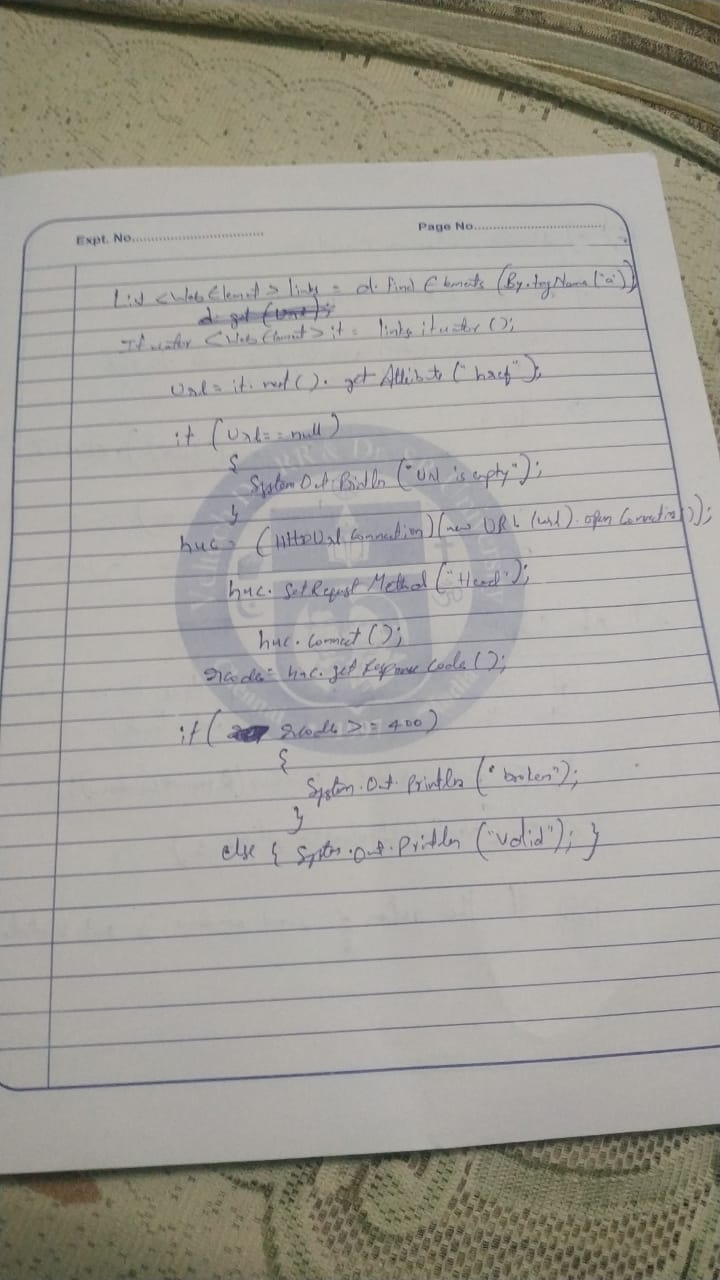 Expt. No.
Page No.
List <WebElement> links = d. find Elements (By.tagName("a"))
d. get (url);
Iterator <WebElement> it = links iterator ();
Url = it. next (). get Attibute ("href");
if (Url = = null)
{
System Out Println ("Url is empty");
}
huc = (HttpUrl Connection) (new URL (url). open Connection());
huc. Set Request Method ("Head");
huc. Connect ();
rcode = huc. get Response Code ();
if ( rcode > = 400)
{
System. Out. Println ("broken");
}
else { System. Out. Println ("valid"); }